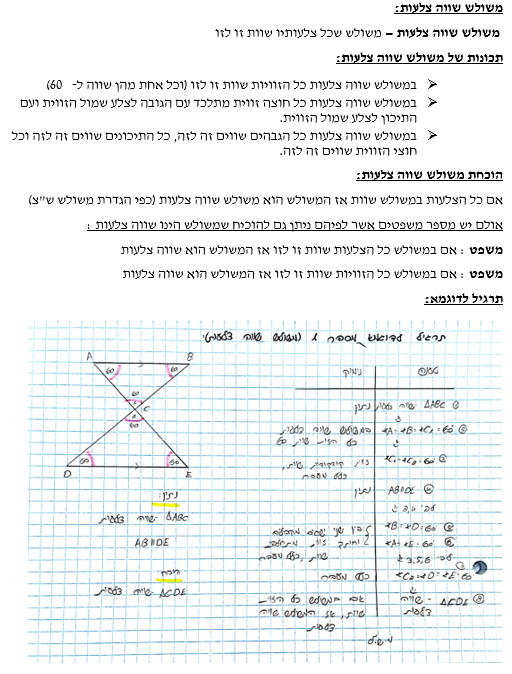 משולש שווה צלעות:
משולש שווה צלעות – משולש שכל צלעותיו שוות זו לזו
תכונות של משולש שווה צלעות:
במשולש שווה צלעות כל הזוויות שוות זו לזו (וכל אחת מהן שווה ל- 60)
במשולש שווה צלעות כל חוצה זווית מתלכד עם הגובה לצלע שמול הזווית ועם
התיכון לצלע שמול הזווית.
במשולש שווה צלעות כל הגבהים שווים זה לזה, כל התיכונים שווים זה לזה וכל
חוצי הזווית שווים זה לזה.
הוכחת משולש שווה צלעות:
אם כל הצלעות במשולש שוות אז המשולש הוא משולש שווה צלעות (כפי הגדרת משולש ש"צ)
אולם יש מספר משפטים אשר לפיהם ניתן גם להוכיח שמשולש הינו שווה צלעות :
משפט : אם במשולש כל הצלעות שוות זו לזו אז המשולש הוא שווה צלעות
משפט : אם במשולש כל הזוויות שוות זו לזו אז המשולש הוא שווה צלעות
תרגיל לדוגמא:
תרגיל לדוגמא מספר 1 (משולש שווה צלעות).
A B
60 60
60
C
60
60 60
D E
נתון:
ΔABC - שווה צלעות
AB||DE
הוכח:
ΔCDE - שווה צלעות
טענה נימוק
ΔABC שווה צלעות נתון
∢A=∢B=∢C₁=60 במשולש שווה צלעות
כל הזוויות שוות 60
∢C₁=∢C₂=60 זוויות קודקודיות שוות,
כלל מעבר
AB||DE נתון
∢B=∢D=60 בין שני ישרים מקבילים
∢A=∢E=60
שוות, כלל מעבר
לפי 3,5,6
∢C₂=∢D=∢E=60 כלל מעבר
ΔCDE - שווה צלעות אם במשולש כל הזוויות
שוות, אז המשולש שווה
צלעות
מ.ש.ל